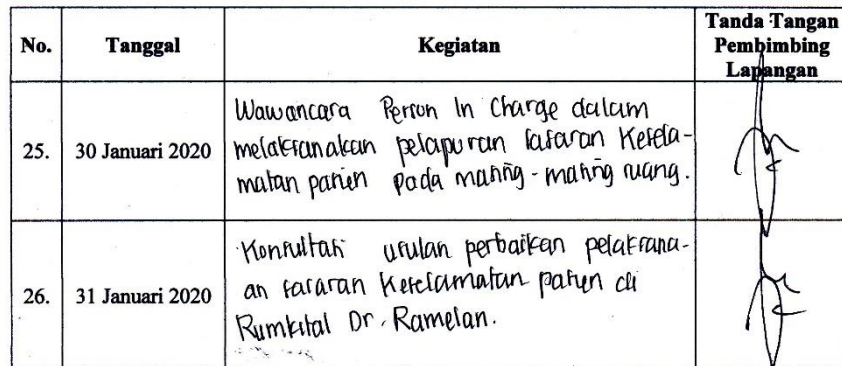 No. Tanggal Kegiatan Tanda Tangan
Pembimbing
Lapangan
25. 30 Januari 2020
Wawancara Person In Charge dalam
melaksanakan pelaporan sasaran Kesela-
matan pasien pada masing-masing ruang.
26. 31 Januari 2020
Konsultasi usulan perbaikan pelaksana-
an sasaran Keselamatan pasien di
Rumkital Dr. Ramelan.